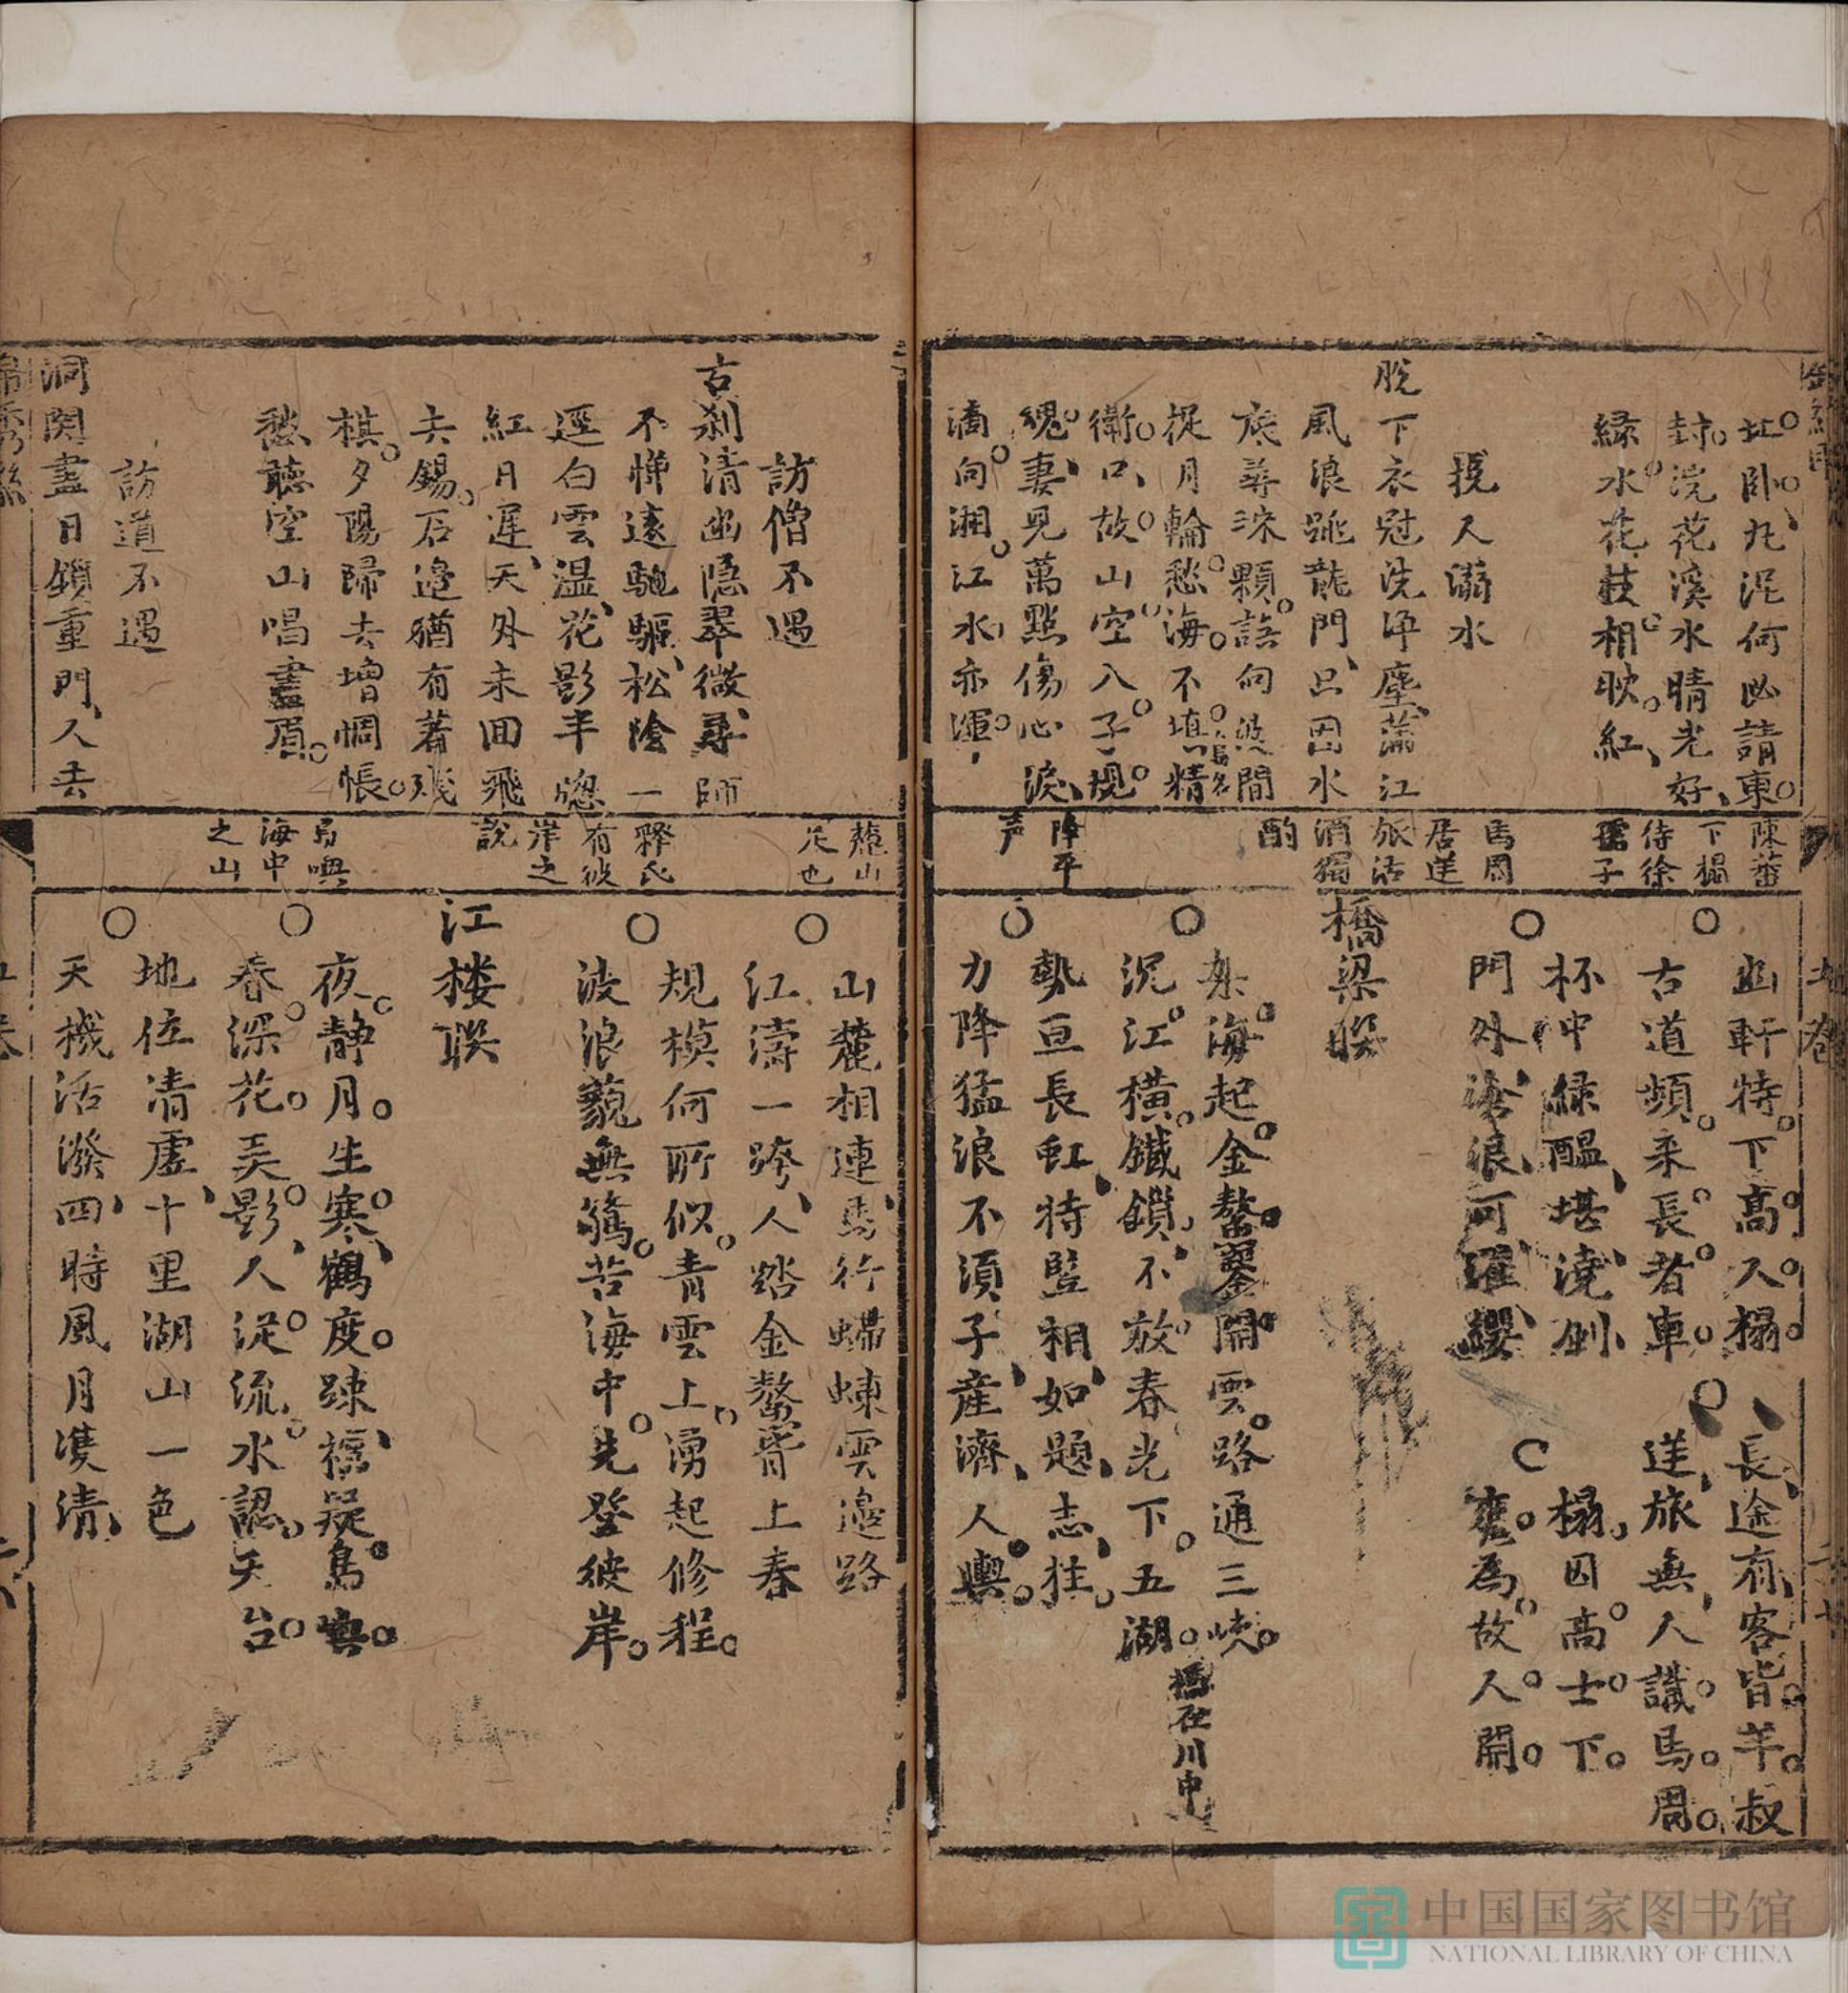 址臥丸泥何必請東
封浣花溪水晴光好
緑水花枝相映紅
挽人溺水
脱下衣冠洗淨塵蒲江
風浪跳龍門只因水
底尋珠顆誤向波間
捉月輪愁海不填精
衛口故山空八子規
魂妻兒萬點傷心淚
滴向湘江水亦渾
陳蕃
下榻
待徐
孺子
馬周
居逆
旅沽
酒獨
酌
降平
声
幽軒特下高人榻
古道頻来長者車
杯中緑醞堪澆
門外滄浪可濯纓
長途有客皆羊叔
逆旅無人識馬周
榻因高士下
甕為故人開
橋梁聨
架海起金鰲鑿開雲路通三峽
沉江横鐵鎖不放春光下五湖
橋在川中
勢亘長虹特豎相如題志柱
力降猛浪不須子産濟人輿
訪僧不遇
古刹清幽隠翠微尋師
不憚遠馳驅松陰一
逕白雲濕花影半窓
紅日遲天外未回飛
去錫石邉猶有著殘
棋夕陽歸去增惆悵
愁聽空山唱畫眉
訪道不遇
洞関盡日鎖重門人去
麓山
足也
釋氏
有彼
岸之
説
島嶼
海中
之山
山麓相連馬行螮蝀雲邉路
江濤一跨人踏金鰲脊上春
規模何所似青雲上湧起修程
波浪藐無驚苦海中先登彼岸
江楼聨
夜静月生寒鶴度踈欞疑島嶼
春深花弄影人従流水認天台
地位清虚十里湖山一色
天機活潑四時風月雙清
中国国家图书馆
NATIONAL LIBRARY OF CHINA